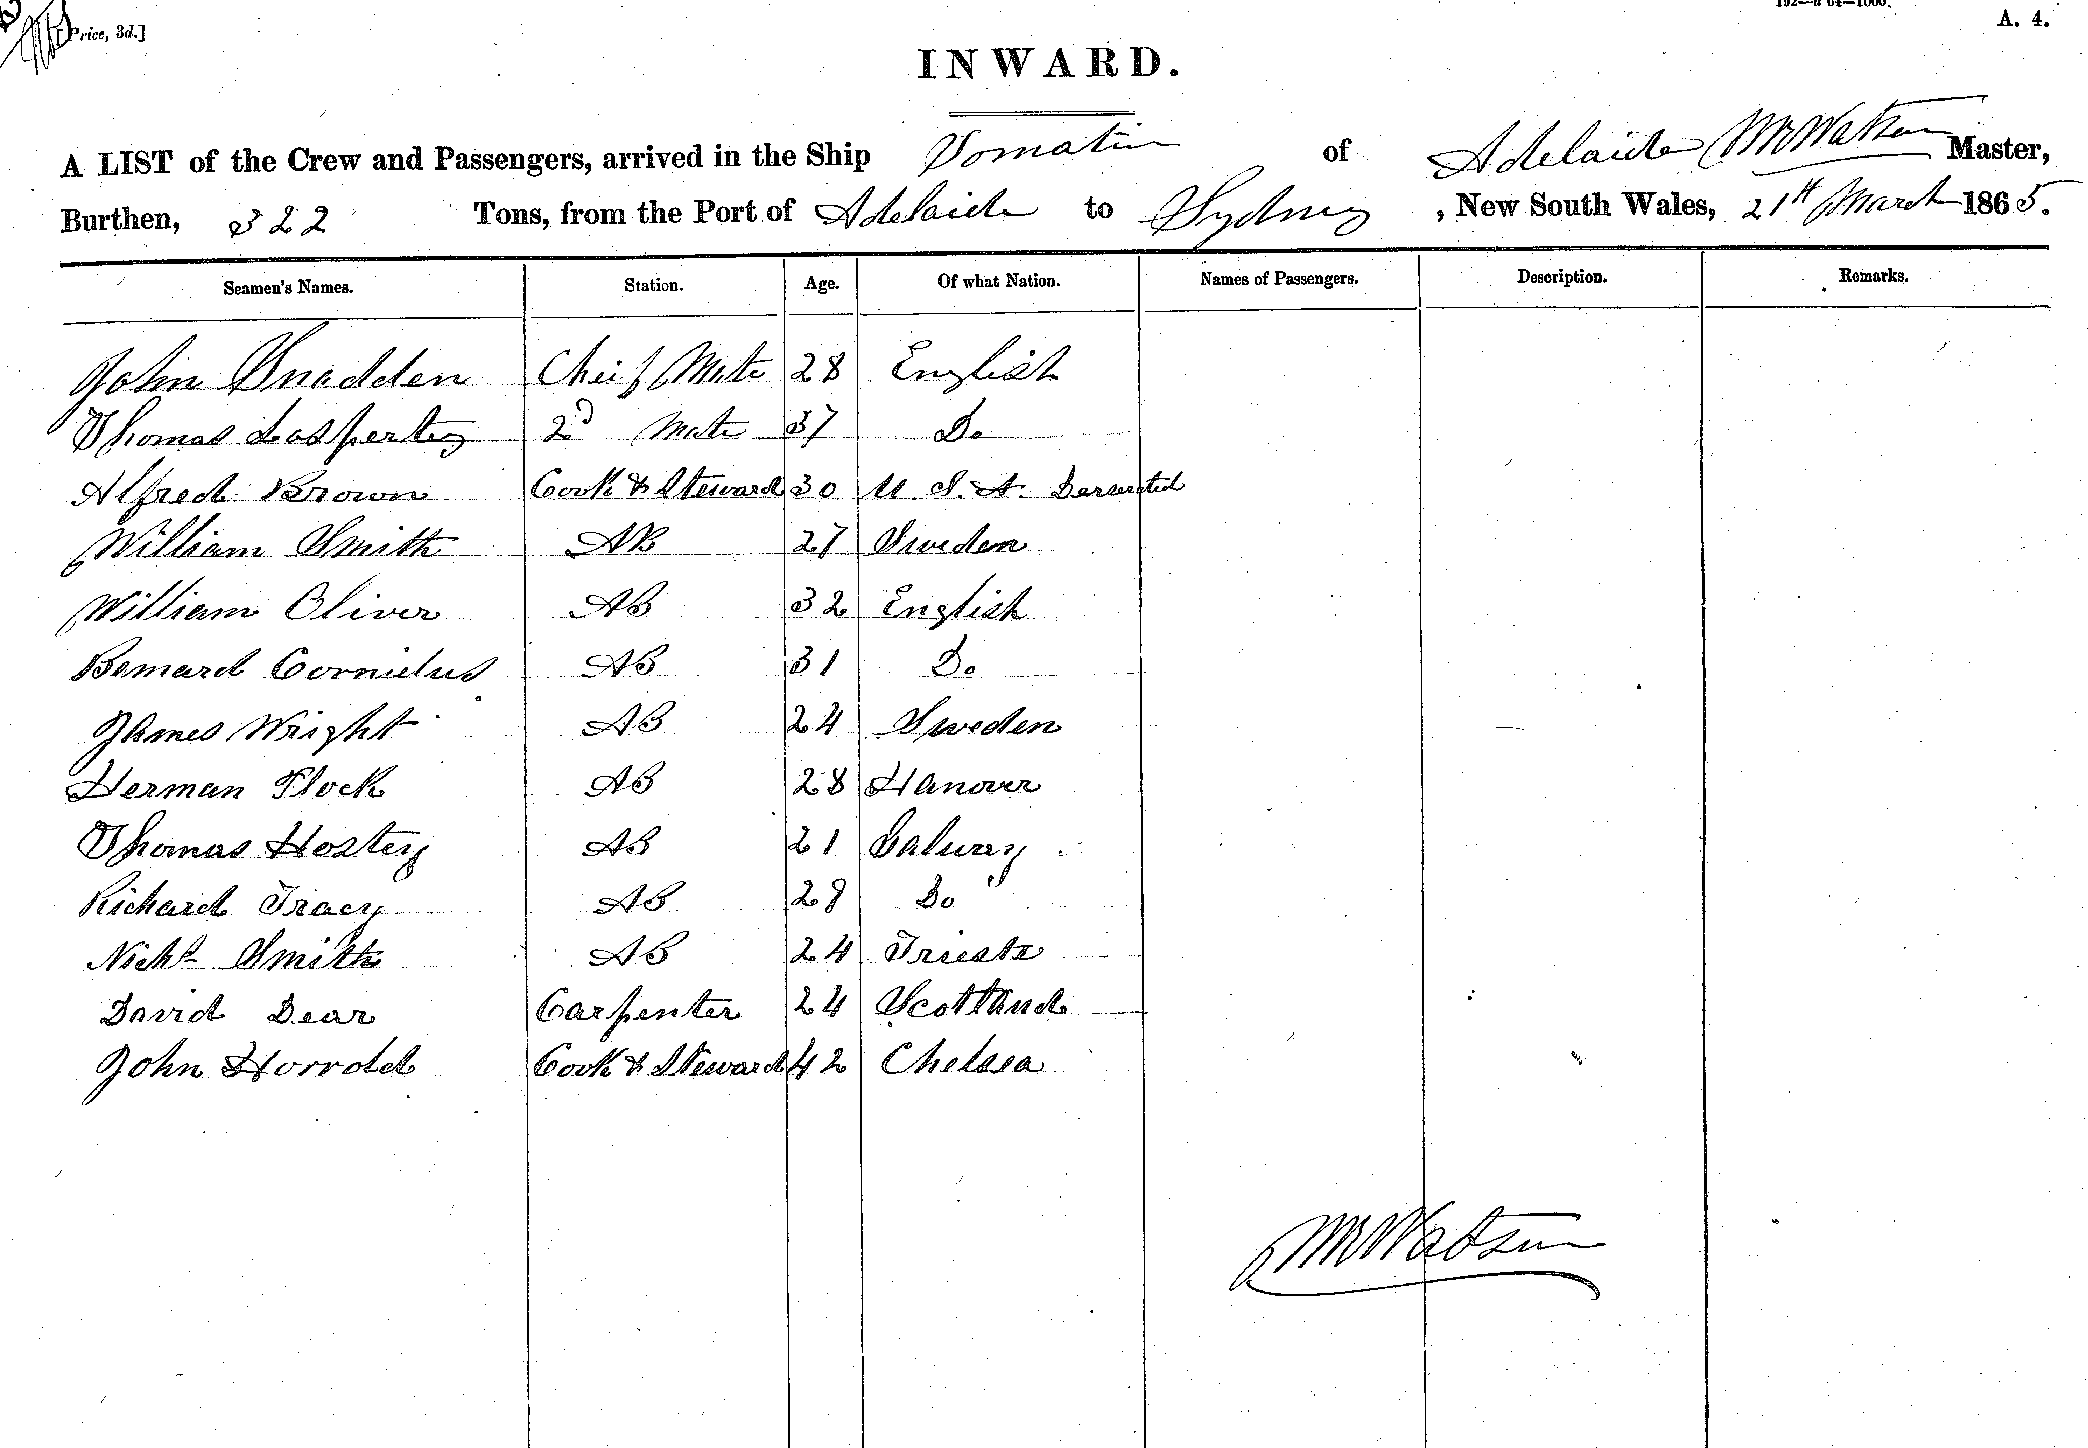 Price, 3d.]
A. 4.
INWARD.
A LIST of the Crew and Passengers, arrived in the Ship of Adelaide McWatson Master,
Burthen, 322 Tons, from the Port of Adelaide to Sydney, New South Wales, 21st March 1865.
Seamen's Names. Station. Age. Of what Nation. Names of Passengers. Description. Remarks.
John Snadden Chief Mate 28 English
Thomas 2d Mate 37 Do
Alfred Brown Cook & Steward 30 U. S. A.
William Smith AB 27 Sweden
William Oliver AB 32 English
Bernard Cornielus AB 31 Do
James Wright AB 24 Sweden
Herman Plock AB 28 Hanover
Thomas Hostey AB 21 Galway
Richard Tracy AB 28 Do
Nichs Smith AB 24 Trieste
David Dear Carpenter 24 Scotland
John Horrold Cook & Steward 42 Chelsea
McWatson